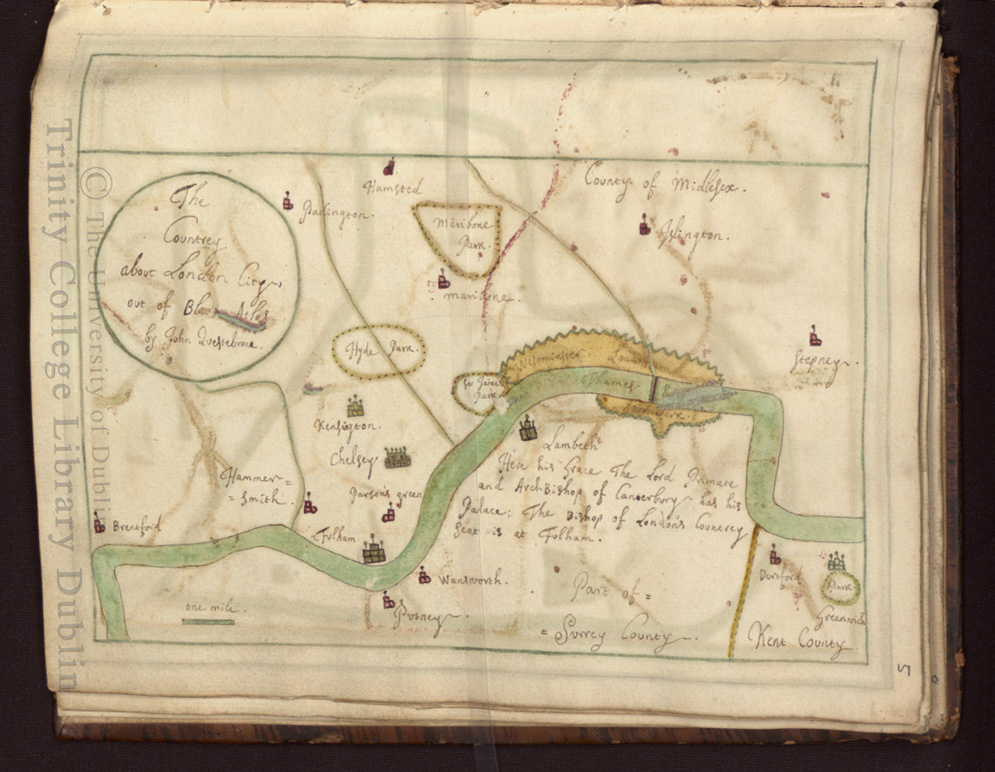 The
Countrey
about London City,
out of Blaus Atlas
by John
Hamsted
Padington.
Maribone
Park.
maribone.
County of Midlesex.
Islington.
Stepney.
Hyde Park.
St James
Park
Westminster London
Thames R
Southwark
Kensigton.
Chelsey
Hammer=
=Smith.
Parsons green
Brentford
Fulham
Wansworth.
Putney.
one mile.
Lambeth
Here his Grace The Lord Primate
and ArchBishop of Canterbury has his
Palace; The Bishop of London's Countrey
Seat is at Fulham.
Part of =
= Surrey County.
Detford
Park
Greenwich
Kent County
5
© The University of Dublin
Trinity College Library Dublin